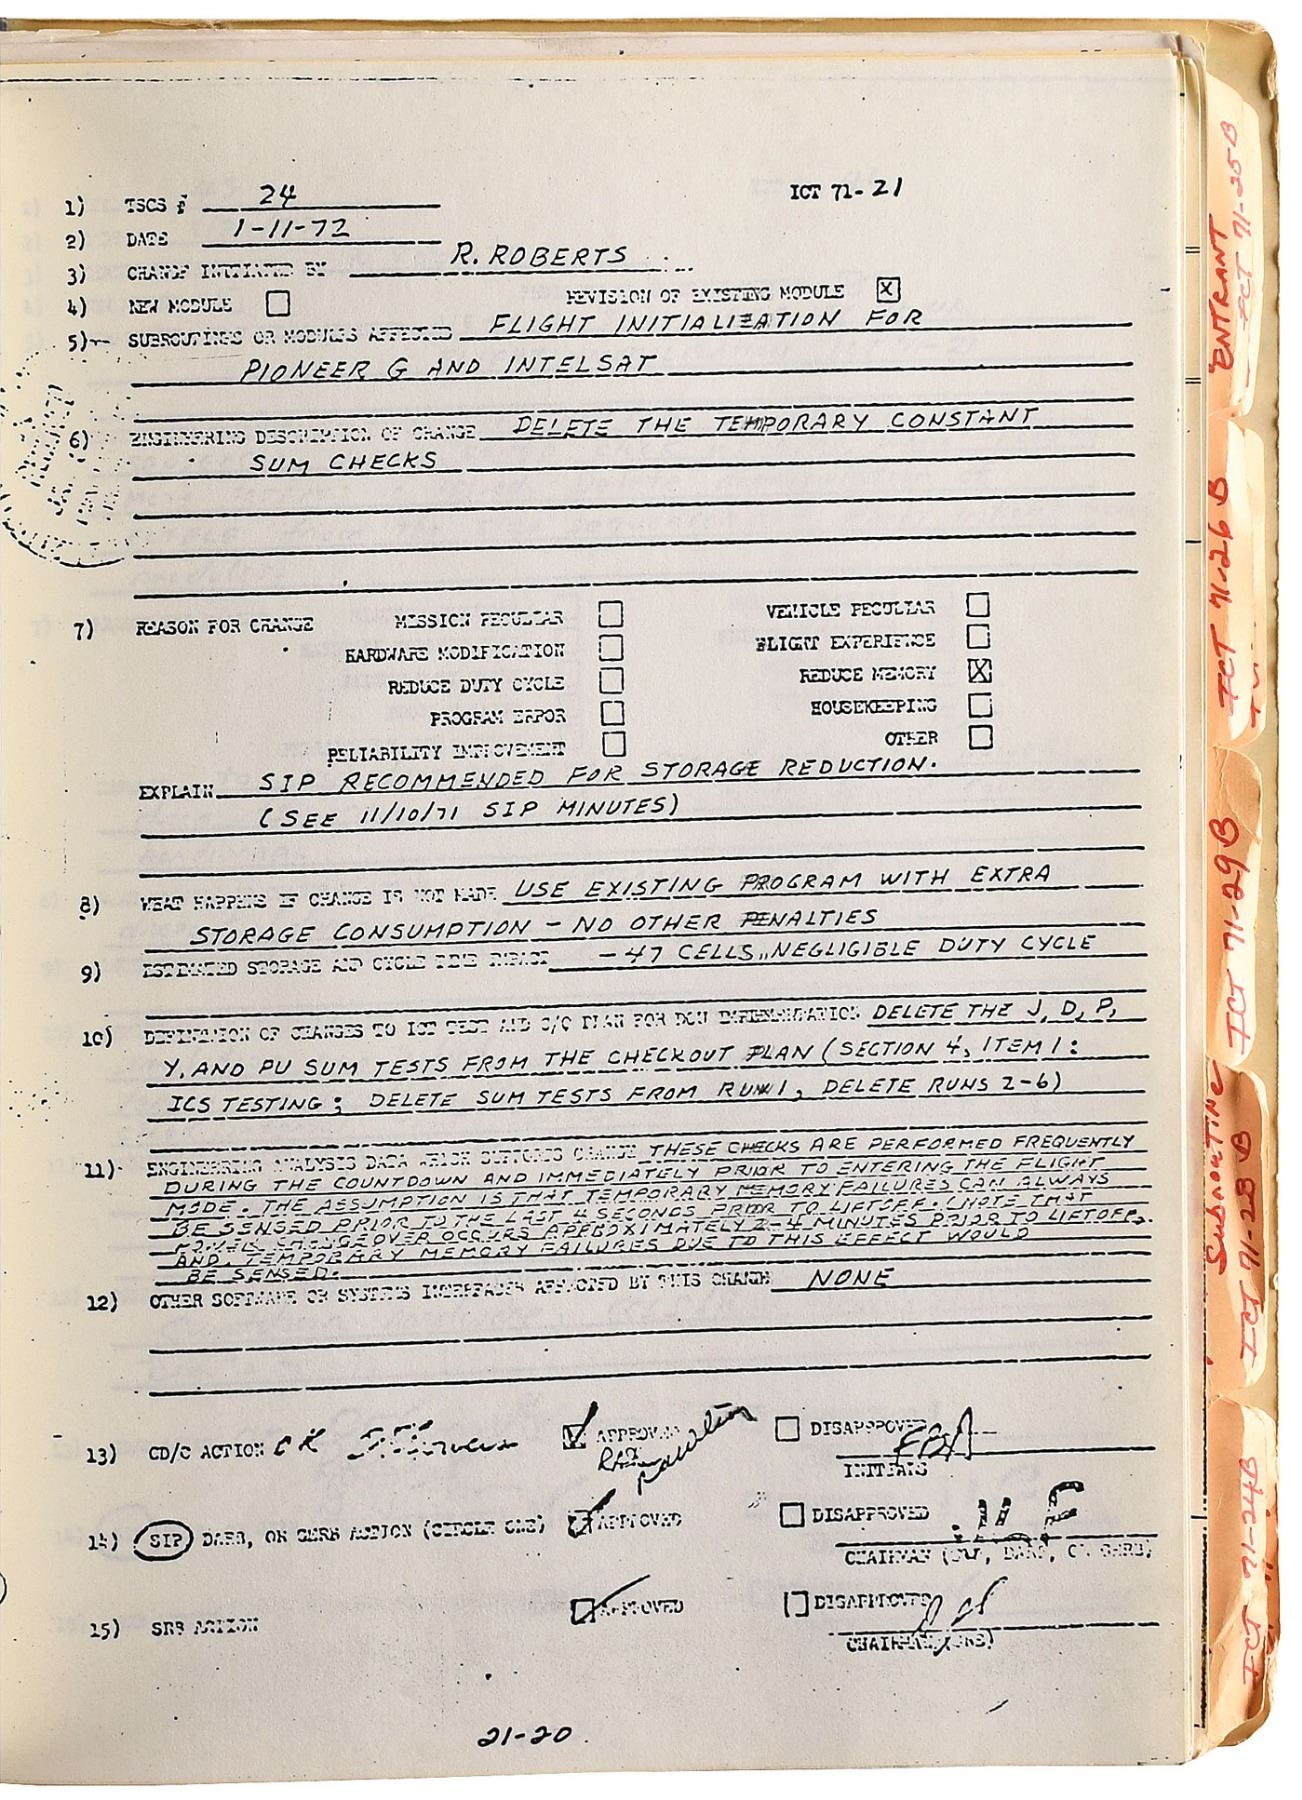 ICT 71-21
1) TSCS # 24
2) DATE 1-11-72
3) CHANGE INITIATED BY R. ROBERTS
4) NEW MODULE REVISION OF EXISTING MODULE X
5) SUBROUTINES OR MODULES AFFECTED FLIGHT INITIALIZATION FOR
PIONEER G AND INTELSAT
6) ENGINEERING DESCRIPTION OF CHANGE DELETE THE TEMPORARY CONSTANT
SUM CHECKS
7) REASON FOR CHANGE MISSION PECULIAR VEHICLE PECULIAR
HARDWARE MODIFICATION FLIGHT EXPERIENCE
REDUCE DUTY CYCLE REDUCE MEMORY X
PROGRAM ERROR HOUSEKEEPING
RELIABILITY IMPROVEMENT OTHER
EXPLAIN SIP RECOMMENDED FOR STORAGE REDUCTION.
(SEE 11/10/71 SIP MINUTES)
8) WHAT HAPPENS IF CHANGE IS NOT MADE USE EXISTING PROGRAM WITH EXTRA
STORAGE CONSUMPTION - NO OTHER PENALTIES
9) ESTIMATED STORAGE AND CYCLE TIME IMPACT -47 CELLS, NEGLIGIBLE DUTY CYCLE
10) DEFINITION OF CHANGES TO ICT TEST AND C/O PLAN FOR DCN IMPLEMENTATION DELETE THE J, D, P,
Y, AND PU SUM TESTS FROM THE CHECKOUT PLAN (SECTION 4, ITEM 1:
ICS TESTING; DELETE SUM TESTS FROM RUN 1, DELETE RUNS 2-6)
11) ENGINEERING ANALYSIS DATA WHICH SUPPORTS CHANGE THESE CHECKS ARE PERFORMED FREQUENTLY
DURING THE COUNTDOWN AND IMMEDIATELY PRIOR TO ENTERING THE FLIGHT
MODE. THE ASSUMPTION IS THAT TEMPORARY MEMORY FAILURES CAN ALWAYS
BE SENSED PRIOR TO THE LAST 4 SECONDS PRIOR TO LIFTOFF. (NOTE THAT
POWER CHANGEOVER OCCURS APPROXIMATELY 2-4 MINUTES PRIOR TO LIFTOFF,
AND TEMPORARY MEMORY FAILURES DUE TO THIS EFFECT WOULD
BE SENSED.
12) OTHER SOFTWARE OR SYSTEMS INTERFACES AFFECTED BY THIS CHANGE NONE
13) CD/C ACTION OK APPROVED DISAPPROVED
INITIALS
14) SIP, DARB, OR GERB ACTION (CIRCLE ONE) APPROVED DISAPPROVED
CHAIRMAN (SIP, DARB, OR GERB)
15) SRB ACTION APPROVED DISAPPROVED
CHAIRMAN (SRB)
21-20
ENTRANT
ICT 71-25B
ICT 71-26B
ICT 71-29B
SUBROUTINE
ICT 71-28B
ICT 71-24B